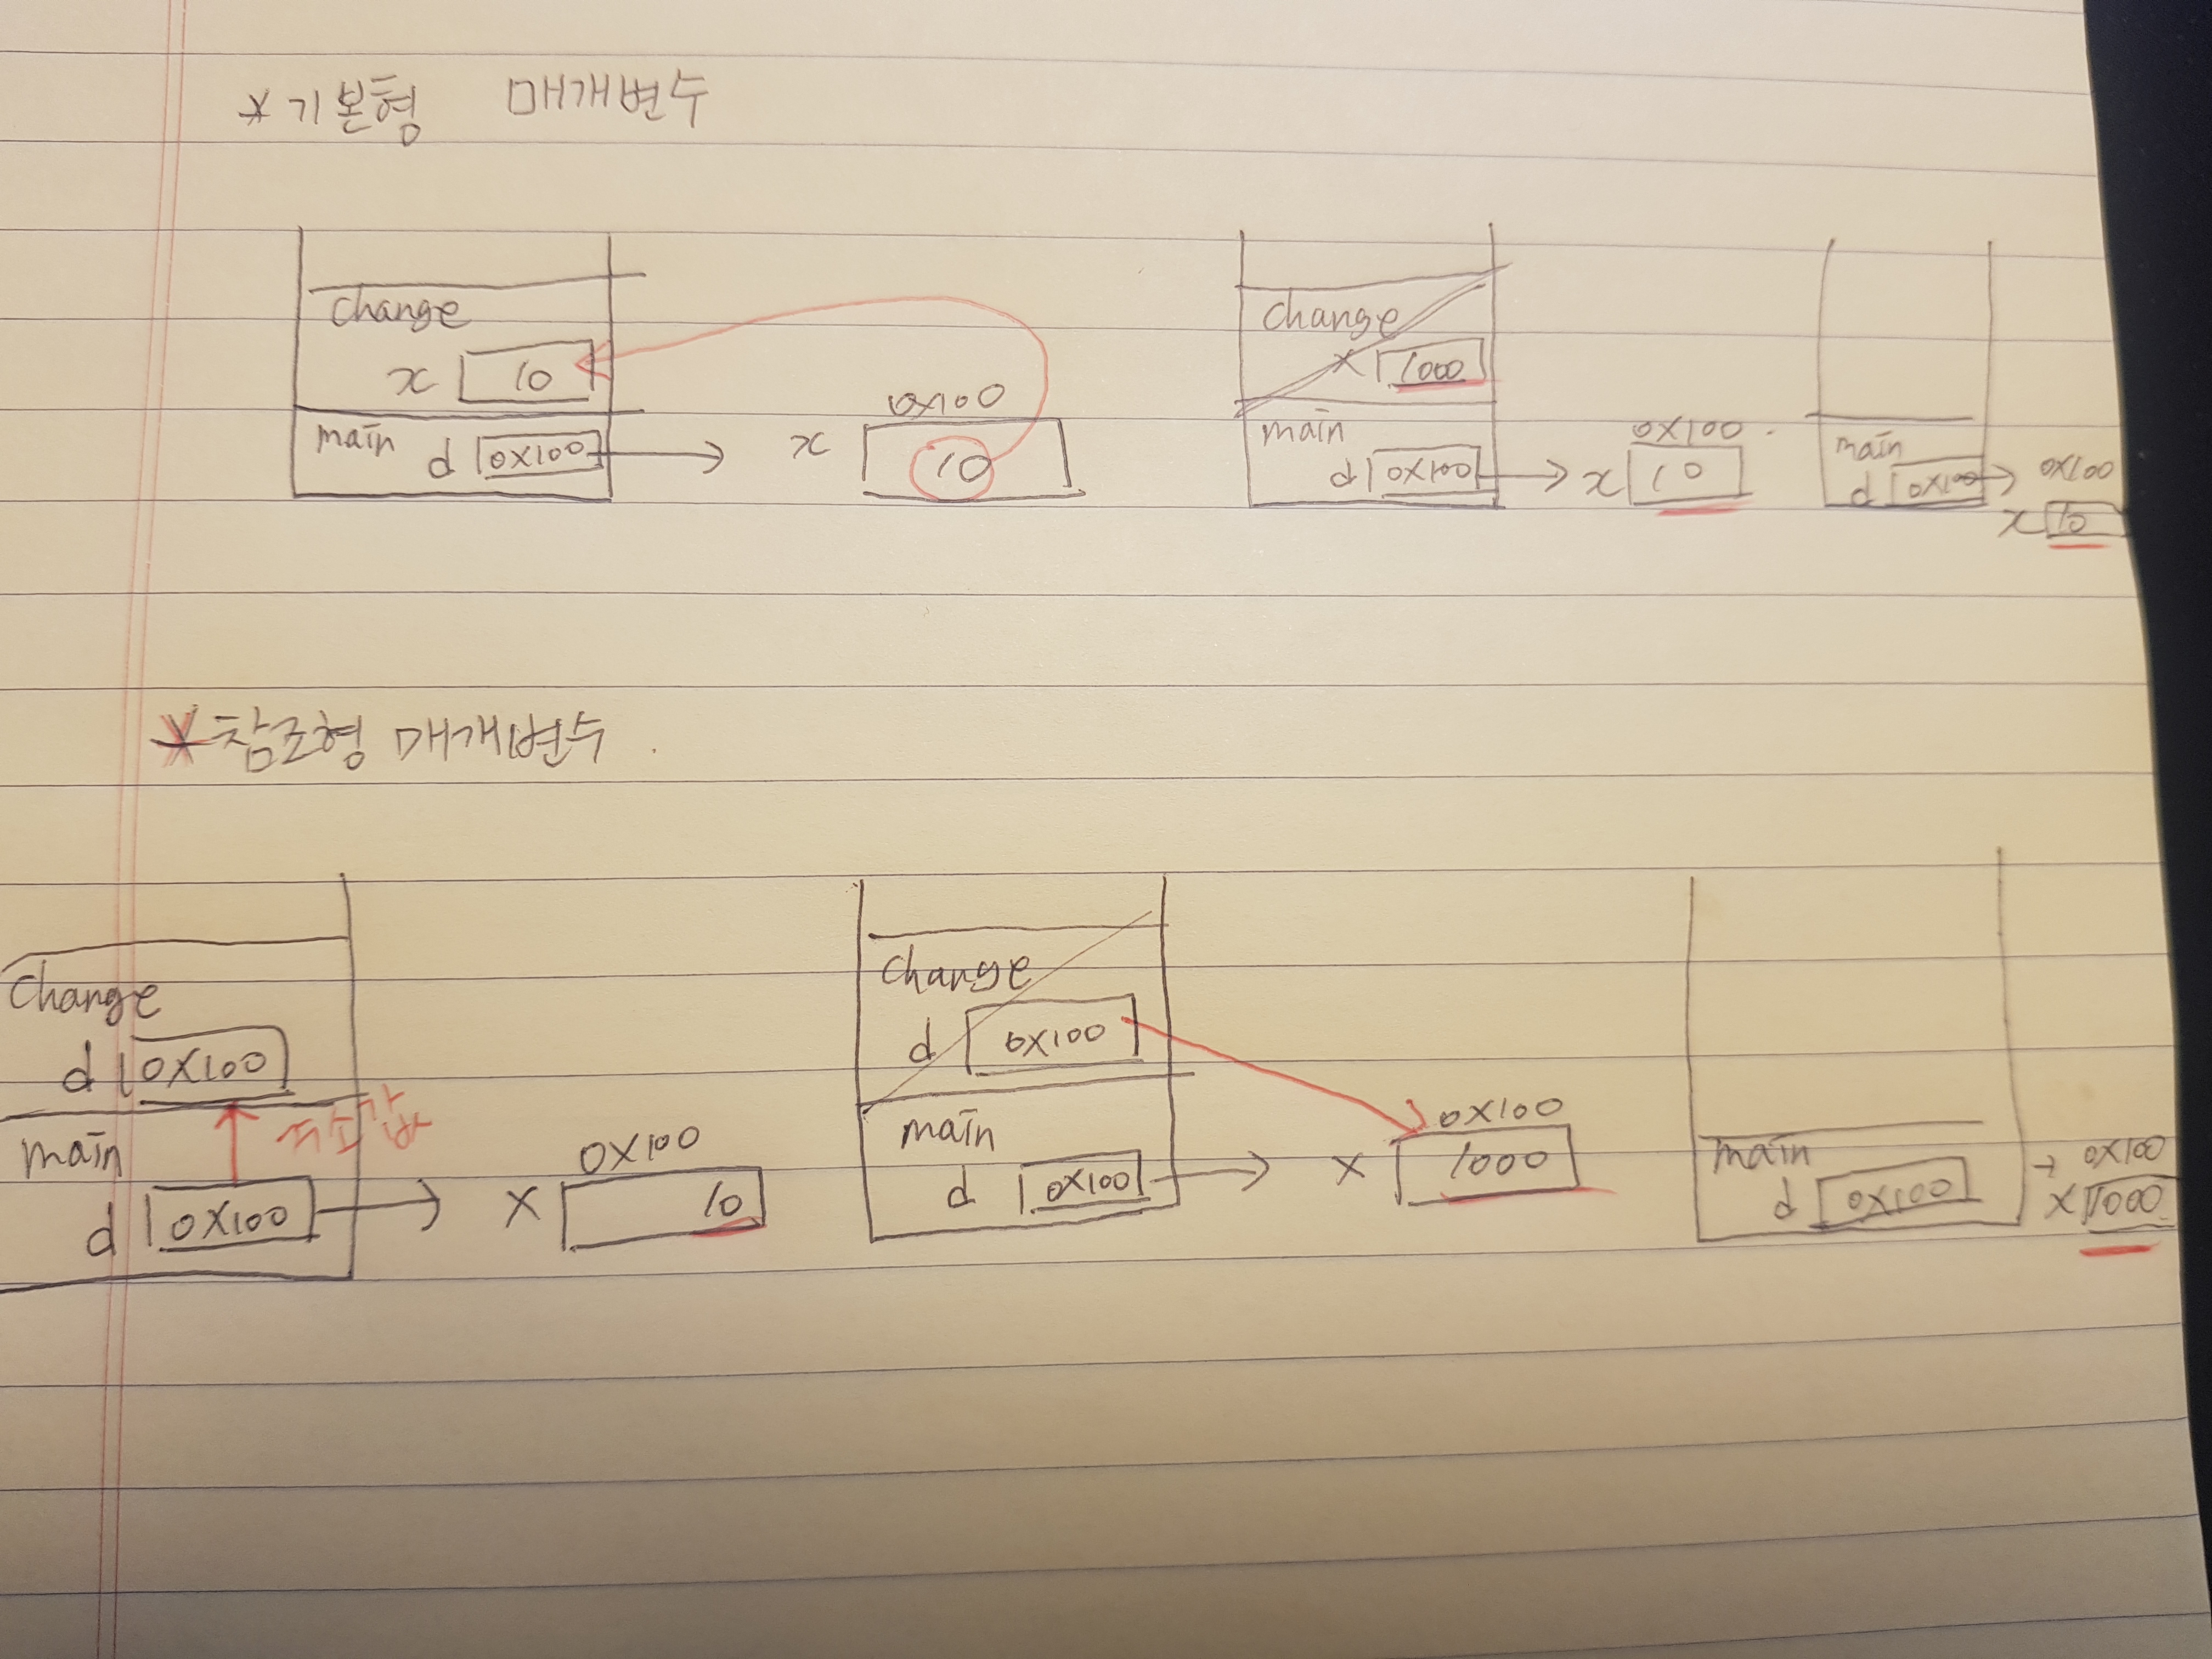 *기본형 매개변수
change
x 10
main d 0x100
x
0x100
10
change
x 1000
main
d 0x100
0x100
x 10
main
d 0x100
0x100
x 10
*참조형 매개변수
change
d 0x100
주소값
main
d 0x100
0x100
x 10
change
d 0x100
main
d 0x100
0x100
x 1000
main
d 0x100
0x100
x 1000